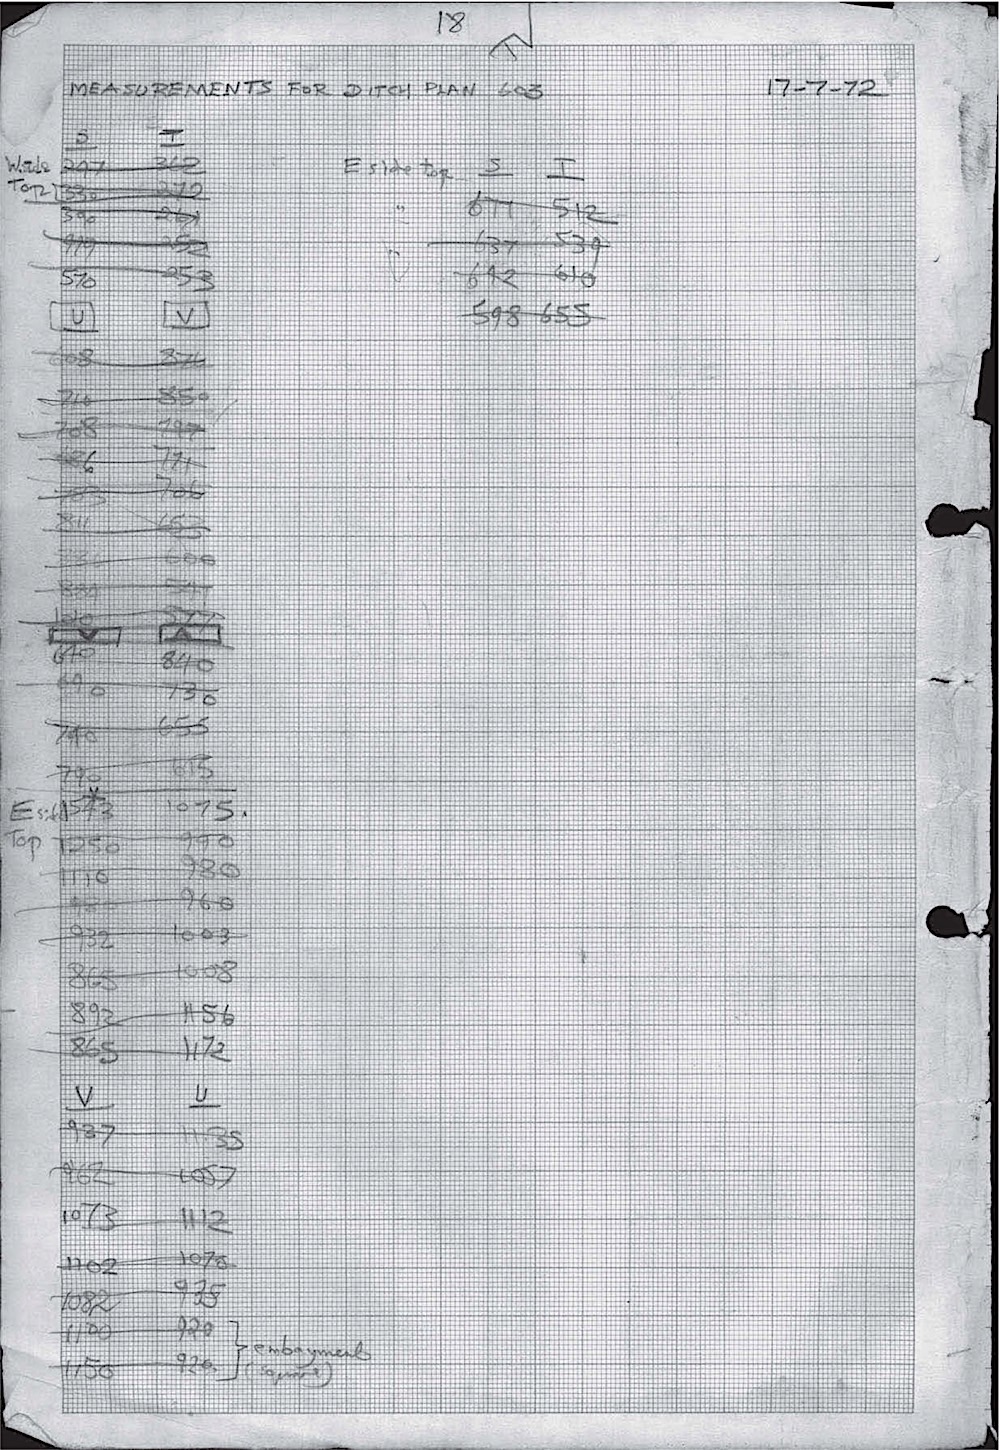 18
MEASUREMENTS FOR DITCH PLAN 603 17-7-72
S T
W side 297 362
Top 330 272
390 261
252
570 253
U V
608 874
710 850
708 797
686 771
706
811 665
600
541
577
V
640 840
690 730
740 655
790 615
E side 1543 1075.
Top 1250 990
1110 980
960
932 1003
865 1008
892 1156
865 1172
V U
937 1135
962 1057
1073 1112
1102 1070
1082 935
1100 920
1150 920
} embayment
(square)
E side top S T
" 677 512
" 637 539
642 610
598 655